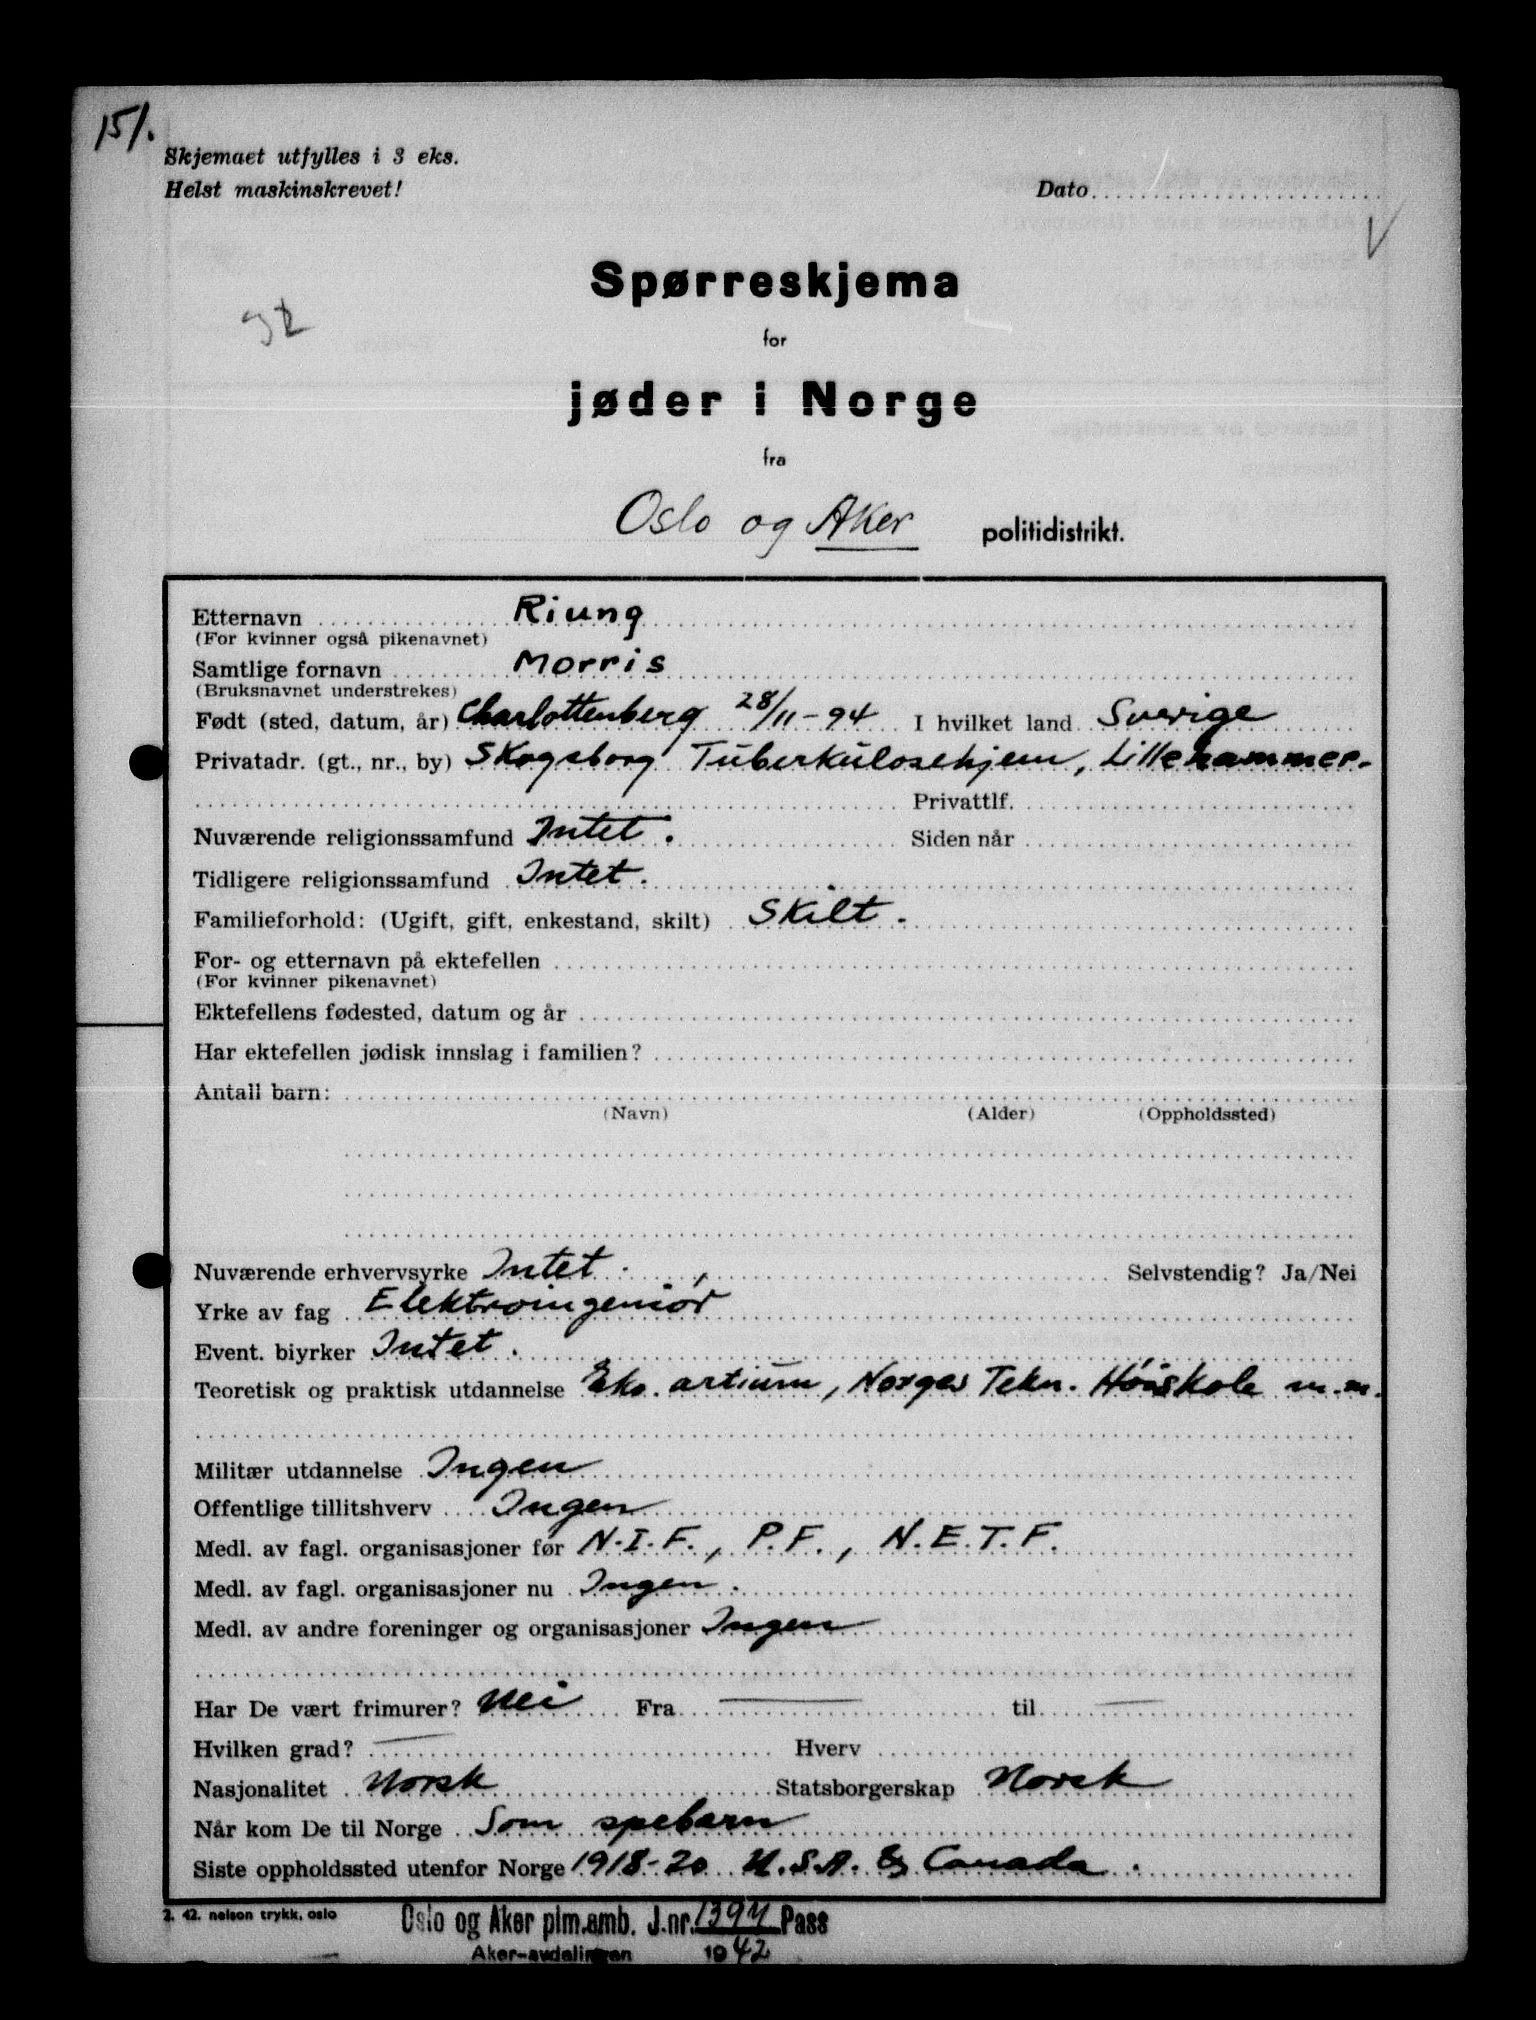 151.
Skjemaet utfylles i 3 eks.
Helst maskinskrevet!
Dato
Spørreskjema
for
jøder i Norge
fra
Oslo og Aker politidistrikt.
Etternavn Riung
(For kvinner også pikenavnet)
Samtlige fornavn Morris
(Bruksnavnet understrekes)
Født (sted, datum, år) Charlottenberg 28/11-94 I hvilket land Sverige
Privatadr. (gt., nr., by) Skogsborg Tuberkulosehjem, Lillehammer.
Privattlf.
Nuværende religionssamfund Intet. Siden når
Tidligere religionssamfund Intet.
Familieforhold: (Ugift, gift, enkestand, skilt) Skilt.
For- og etternavn på ektefellen
(For kvinner pikenavnet)
Ektefellens fødested, datum og år
Har ektefellen jødisk innslag i familien?
Antall barn:
(Navn) (Alder) (Oppholdssted)
Nuværende erhvervsyrke Intet. Selvstendig? Ja/Nei
Yrke av fag Elektroingeniør
Event. biyrker Intet.
Teoretisk og praktisk utdannelse Eks. artium, Norges Tekn. Høiskole m.m.
Militær utdannelse Ingen
Offentlige tillitshverv Ingen
Medl. av fagl. organisasjoner før N.I.F., P.F., N.E.T.F.
Medl. av fagl. organisasjoner nu Ingen.
Medl. av andre foreninger og organisasjoner Ingen
Har De vært frimurer? Nei Fra — til —
Hvilken grad? — Hverv
Nasjonalitet Norsk Statsborgerskap Norsk
Når kom De til Norge Som spebarn
Siste oppholdssted utenfor Norge 1918-20 U.S.A. & Canada.
2. 42. nelson trykk, oslo
Oslo og Aker plm.amb. J.nr. 1394 Pass
Aker-avdelingen 1942